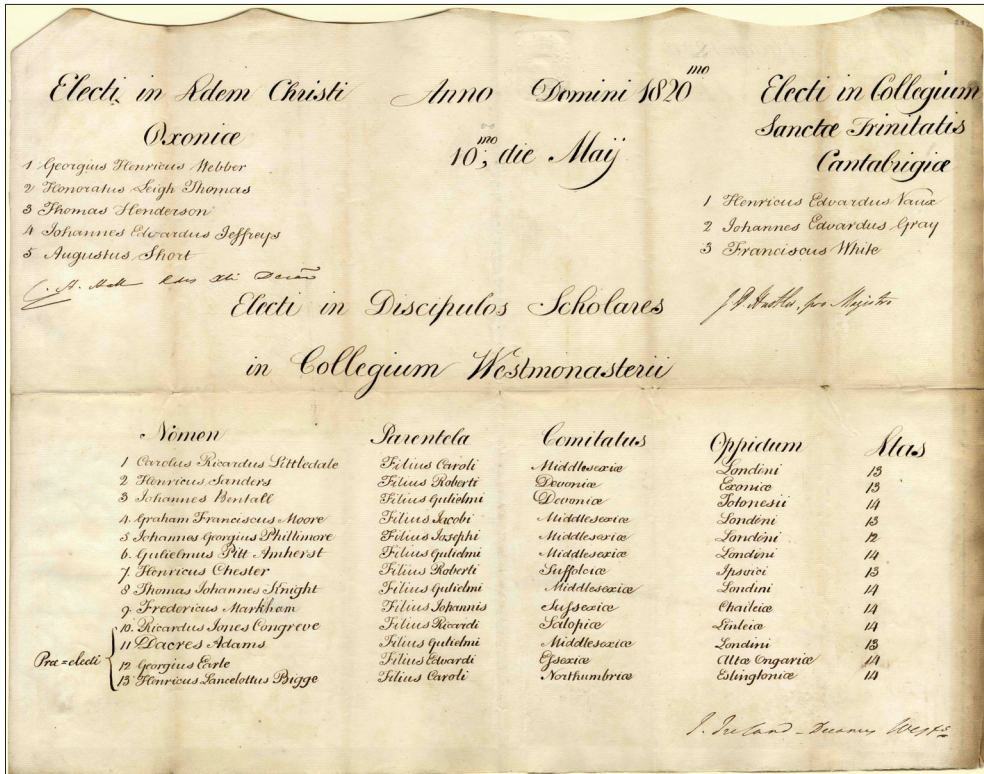 Electi in Ædem Christi
Oxoniæ
1 Georgius Henricus Webber
2 Honoratus Leigh Thomas
3 Thomas Henderson
4 Johannes Edvardus Jeffreys
5 Augustus Short
Anno Domini 1820mo
10mo; die Maij
Electi in Collegium
Sanctæ Trinitatis
Cantabrigiæ
1 Henricus Edvardus Vaux
2 Johannes Edvardus Gray
3 Franciscus White
pro Magistro
Electi in Discipulos Scholares
in Collegium Westmonasterii
Nomen Parentela Comitatus Oppidum Ætas
1 Carolus Ricardus Littledale Filius Caroli Middlesexiæ Londini 13
2 Henricus Sanders Filius Roberti Devoniæ Exoniæ 13
3 Johannes Bentall Filius Gulielmi Devoniæ Totonesii 14
4 Graham Franciscus Moore Filius Jacobi Middlesexiæ Londini 13
5 Johannes Georgius Phillimore Filius Josephi Middlesexiæ Londini 12
6 Gulielmus Pitt Amherst Filius Gulielmi Middlesexiæ Londini 14
7 Henricus Chester Filius Roberti Suffolciæ Ipsvici 13
8 Thomas Johannes Knight Filius Gulielmi Middlesexiæ Londini 14
9 Fredericus Markham Filius Johannis Sufsexiæ Chaileiæ 14
10 Ricardus Jones Congreve Filius Ricardi Salopiæ Linleiæ 14
11 Dacres Adams Filius Gulielmi Middlesexiæ Londini 13
Præ=electi
12 Georgius Evrle Filius Edvardi Efsexiæ Altæ Ongariæ 14
13 Henricus Lancelottus Bigge Filius Caroli Northumbriæ Eslingtoniæ 14
J. Ireland - Decanus